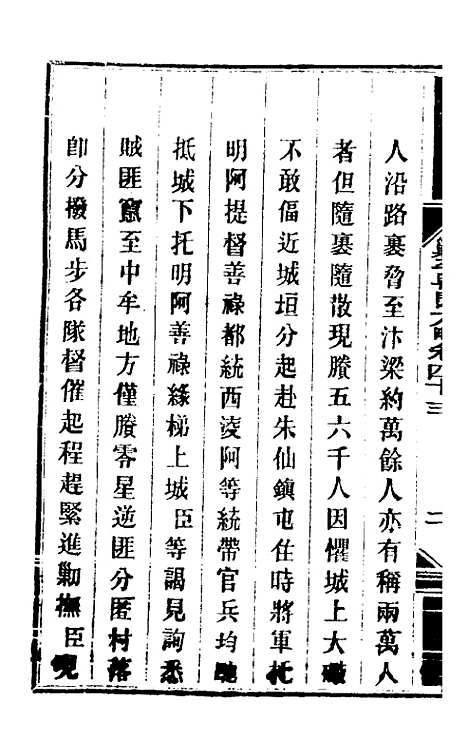 人沿路裹脅至汴梁約萬餘人亦有稱兩萬人
者但隨裹隨散現賸五六千人因懼城上大礮
不敢偪近城垣分起赴朱仙鎮屯住時將軍托
明阿提督善祿都統西淩阿等統帶官兵均馳
抵城下托明阿善祿綠梯上城臣等謁見詢悉
賊匪竄至中牟地方僅賸零星逆匪分匿村落
卽分撥馬步各隊督催起程趕緊進勦撫臣
卷四十三
二